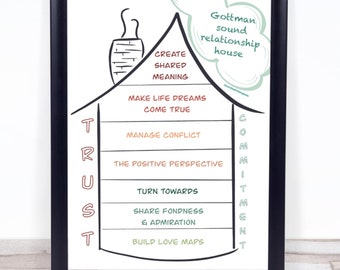 Gottman
sound
relationship
house
CREATE
SHARED
MEANING
MAKE LIFE DREAMS
COME TRUE
MANAGE CONFLICT
THE POSITIVE PERSPECTIVE
TURN TOWARDS
SHARE FONDNESS
& ADMIRATION
BUILD LOVE MAPS
TRUST
COMMITMENT